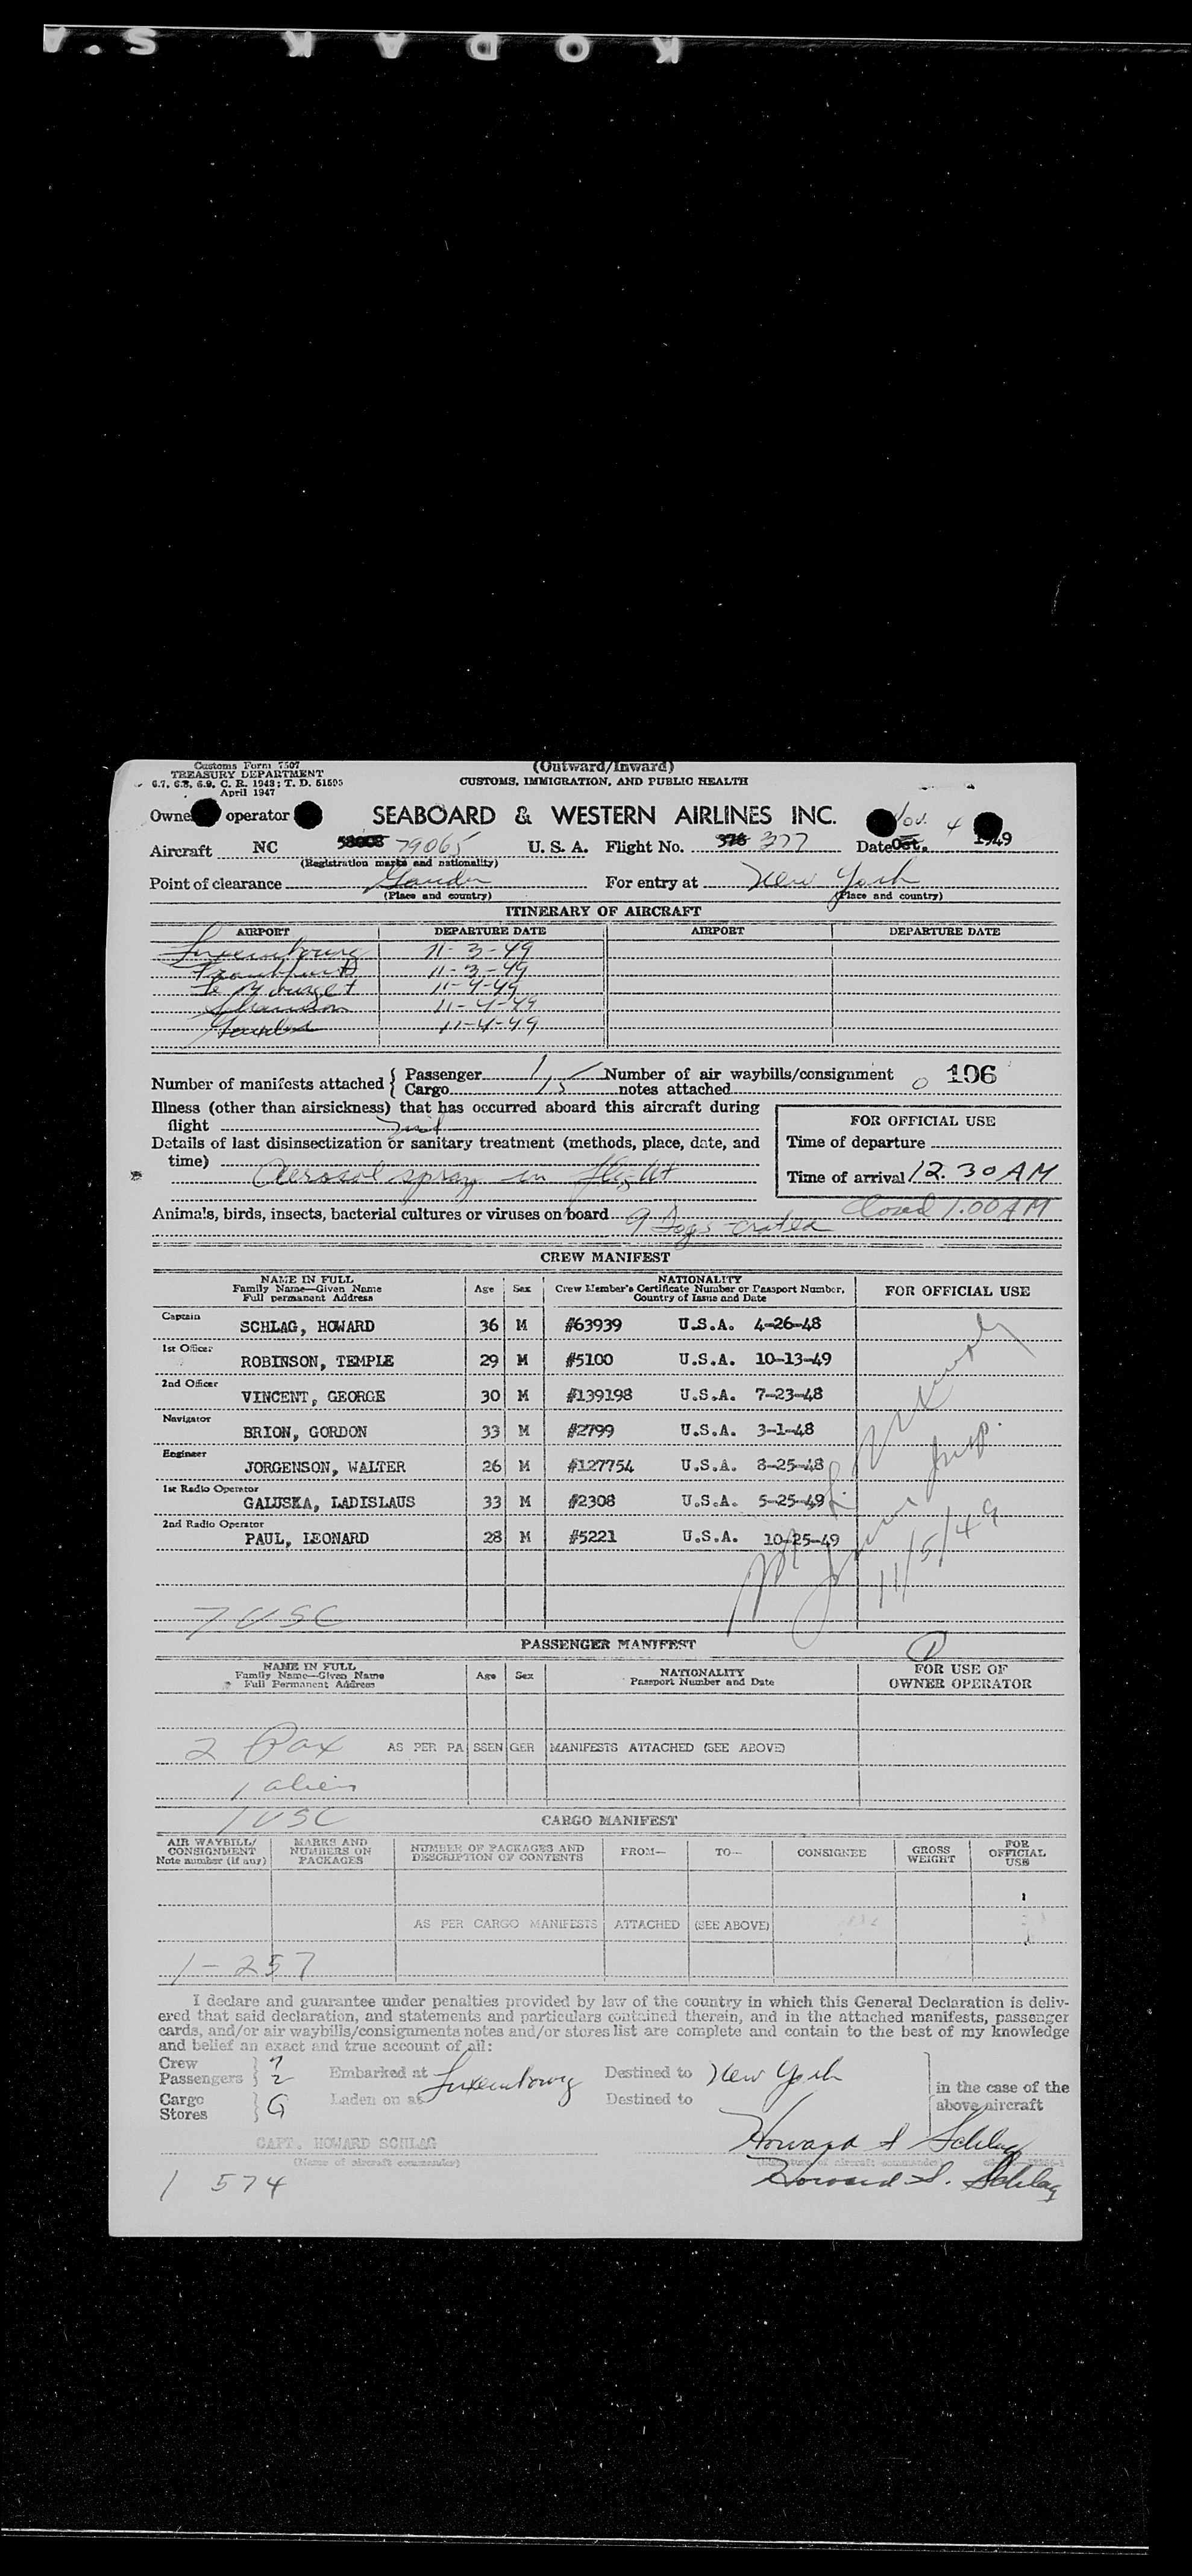 KODAK S.A
Customs Form 7507
TREASURY DEPARTMENT
6.7, 6.8, 6.9, C. R. 1943; T. D. 51595
April 1947
(Outward/Inward)
CUSTOMS, IMMIGRATION, AND PUBLIC HEALTH
Owner operator SEABOARD & WESTERN AIRLINES INC. Nov. 4
Aircraft NC 79065 U. S. A. Flight No. 376 377 Date Oct. 1949
(Registration marks and nationality)
Point of clearance Gander For entry at New York
(Place and country) (Place and country)
ITINERARY OF AIRCRAFT
AIRPORT DEPARTURE DATE AIRPORT DEPARTURE DATE
Luxembourg 11-3-49
Frankfurt 11-3-49
Le Bourget 11-4-49
Shannon 11-4-49
Gander 11-4-49
Number of manifests attached { Passenger 1 Number of air waybills/consignment 0 106
Cargo 15 notes attached
Illness (other than airsickness) that has occurred aboard this aircraft during
flight
FOR OFFICIAL USE
Details of last disinsectization or sanitary treatment (methods, place, date, and
time) Aerosol spray in flight
Time of departure
Time of arrival 12.30 AM
Closed 1.00 AM
Animals, birds, insects, bacterial cultures or viruses on board 9 Dogs crated
CREW MANIFEST
NAME IN FULL
Family Name—Given Name
Full permanent Address
Age Sex
NATIONALITY
Crew Member's Certificate Number or Passport Number,
Country of Issue and Date
FOR OFFICIAL USE
Captain
SCHLAG, HOWARD 36 M #63939 U.S.A. 4-26-48
1st Officer
ROBINSON, TEMPLE 29 M #5100 U.S.A. 10-13-49
2nd Officer
VINCENT, GEORGE 30 M #139198 U.S.A. 7-23-48
Navigator
BRION, GORDON 33 M #2799 U.S.A. 3-1-48
Engineer
JORGENSON, WALTER 26 M #127754 U.S.A. 8-25-48
1st Radio Operator
GALUSKA, LADISLAUS 33 M #2308 U.S.A. 5-25-49
2nd Radio Operator
PAUL, LEONARD 28 M #5221 U.S.A. 10-25-49
Insp.
11/5/49
7 USC
PASSENGER MANIFEST 1
NAME IN FULL
Family Name—Given Name
Full Permanent Address
Age Sex
NATIONALITY
Passport Number and Date
FOR USE OF
OWNER OPERATOR
2 Pax AS PER PASSENGER MANIFESTS ATTACHED (SEE ABOVE)
1 alien
1 USC
CARGO MANIFEST
AIR WAYBILL/
CONSIGNMENT
Note number (if any)
MARKS AND
NUMBERS ON
PACKAGES
NUMBER OF PACKAGES AND
DESCRIPTION OF CONTENTS
FROM— TO— CONSIGNEE
GROSS
WEIGHT
FOR
OFFICIAL
USE
AS PER CARGO MANIFESTS ATTACHED (SEE ABOVE)
1-257
I declare and guarantee under penalties provided by law of the country in which this General Declaration is deliv-
ered that said declaration, and statements and particulars contained therein, and in the attached manifests, passenger
cards, and/or air waybills/consignments notes and/or stores list are complete and contain to the best of my knowledge
and belief an exact and true account of all:
Crew 7
Passengers 2 Embarked at Luxembourg Destined to New York in the case of the
Cargo G Laden on at Destined to above aircraft
Stores
CAPT. HOWARD SCHLAG Howard S Schlag
(Name of aircraft commander) (Signature of aircraft commander)
1 574 Howard S. Schlag